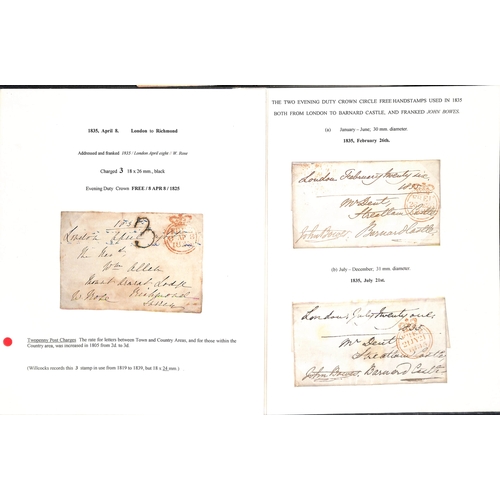 1835, April 8.    London to Richmond
Addressed and franked 1835 / London April eight / W. Rose
Charged 3 18 x 26 mm., black
Evening Duty Crown FREE / 8 APR 8 / 1825
1835
London April
3
Wm Allan
Richmond
Twopenny Post Charges. The rate for letters between Town and Country Areas, and for those within the
Country area, was increased in 1805 from 2d to 3d
(Willcocks records this 3 stamp in use from 1819 to 1839, but 18 x 24 mm.)
THE TWO EVENING DUTY CROWN CIRCLE FREE HANDSTAMPS USED IN 1835
BOTH FROM LONDON TO BARNARD CASTLE, AND FRANKED JOHN BOWES.
(a) January – June; 30 mm. diameter.
1835, February 26th.
London February twenty six
1835
Mr Dent
Streatlam Castle
John Bowes Barnard Castle
(b) July – December; 31 mm. diameter.
1835, July 21st.
London July twenty one
1835
Mr Dent
Streatlam Castle
John Bowes Barnard Castle